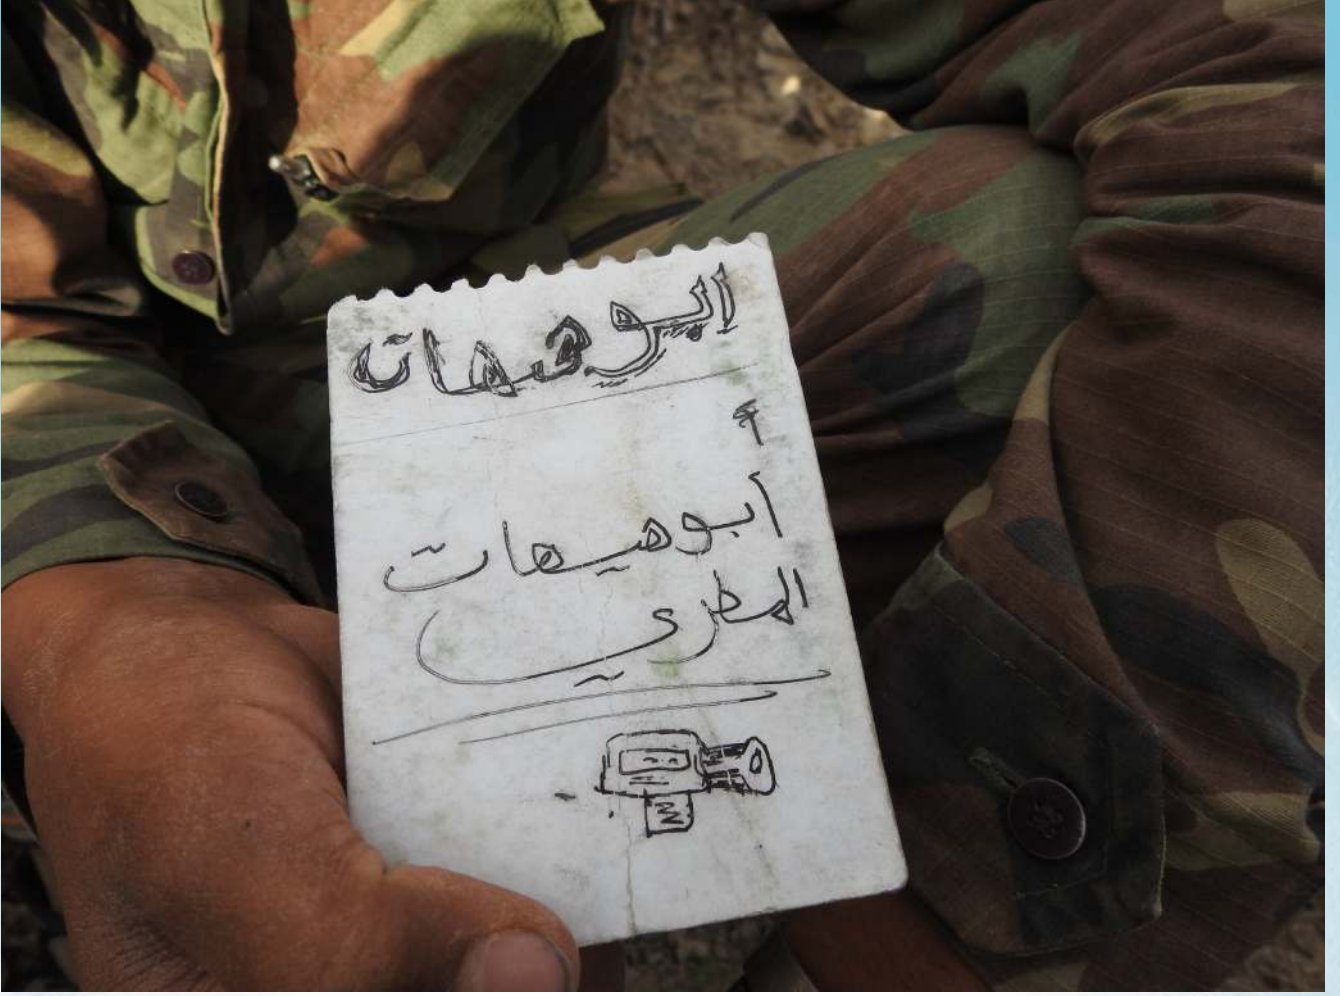 ابو هيهات
أ
أبو هيهات
المطري